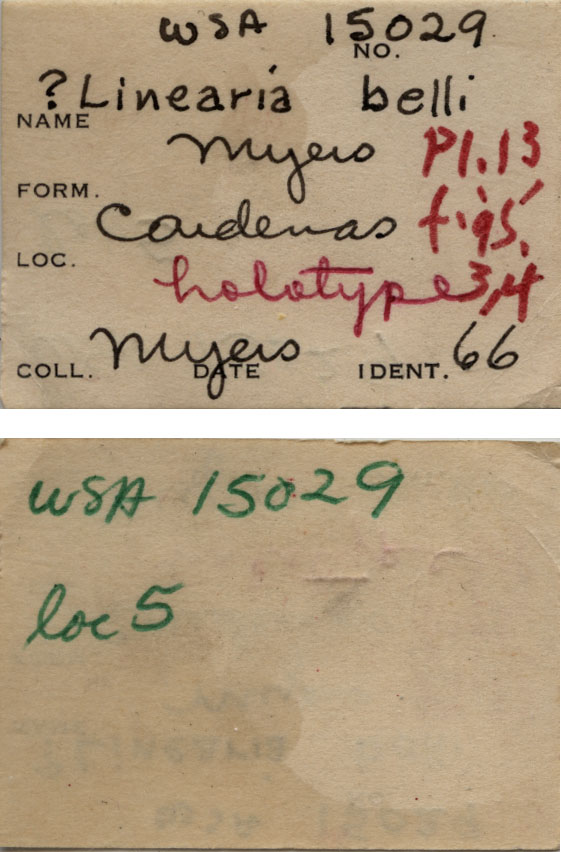 WSA 15029
NO.
? Linearia belli
NAME
Myers Pl. 13
FORM.
Cardenas figs.
LOC.
holotype 3,4
Myers 66
COLL. DATE IDENT.
WSA 15029
loc 5